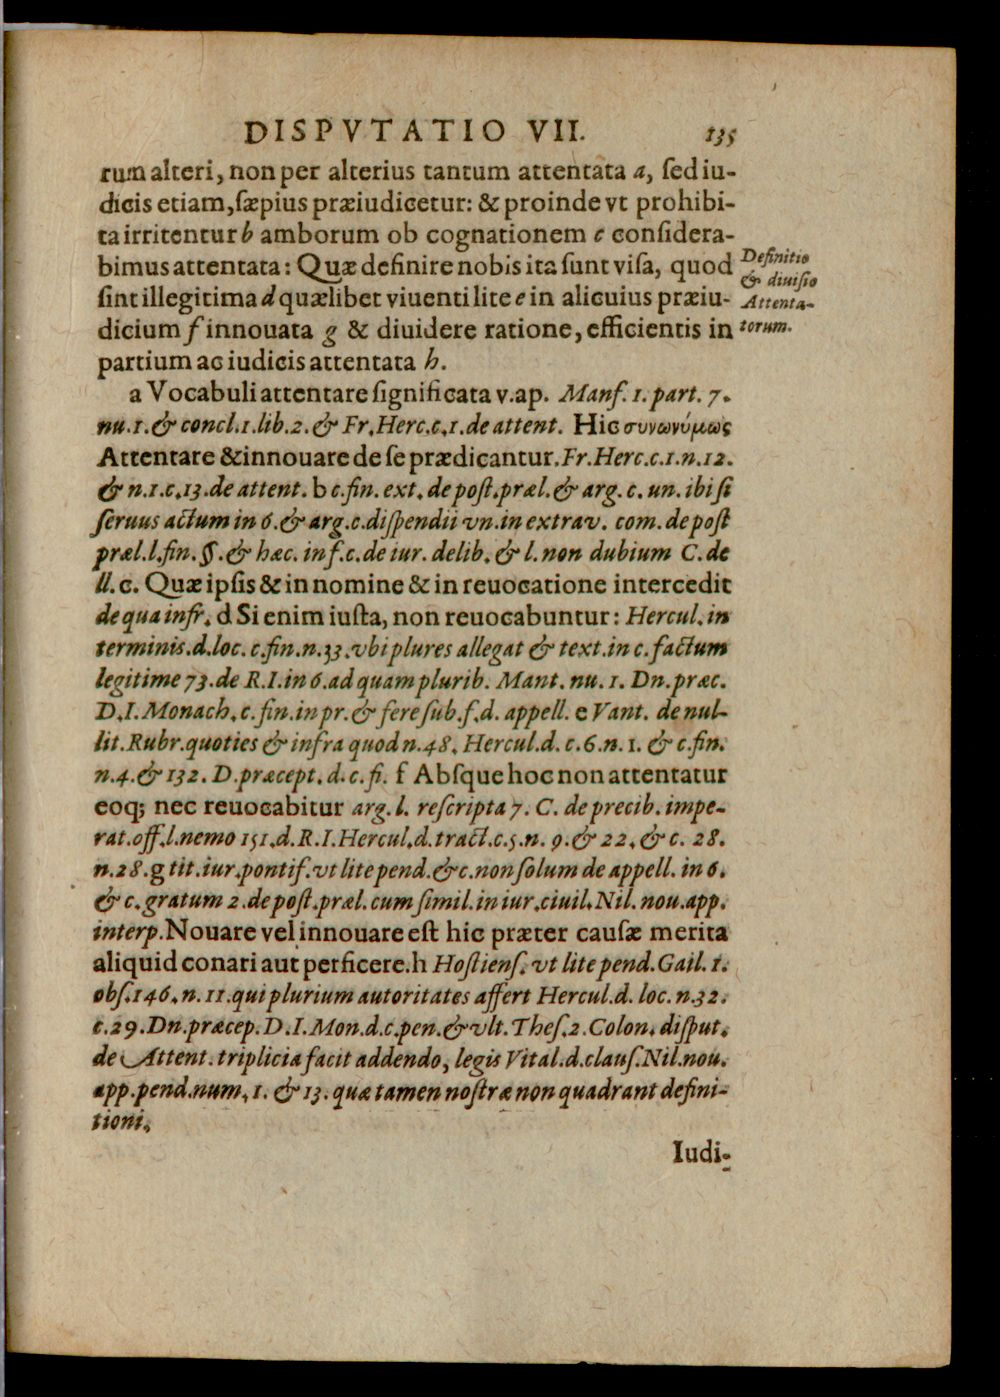 DISPVTATIO VII. 135
rum alteri, non per alterius tantum attentata a, ſed iu-
dicis etiam, ſæpius præiudicetur: & proinde vt prohibi-
ta irritentur b amborum ob cognationem c conſidera-
bimus attentata: Quæ definire nobis ita ſunt viſa, quod
ſint illegitima d quælibet viuenti lite e in alicuius præiu-
dicium f innouata g & diuidere ratione, efficientis in
partium ac iudicis attentata h.
Definitio
& diuiſio
Attenta-
torum.
a Vocabuli attentare ſignificata v.ap. Manſ. 1. part. 7.
nu.1. & concl.1.lib.2. & Fr.Herc.c.1.de attent. Hic συνωνύμως
Attentare & innouare de ſe prædicantur. Fr.Herc.c.1.n.12.
& n.1.c.13.de attent. b c.fin. ext. de poſt.præl. & arg. c. un. ibi ſi
ſeruus actum in 6. & arg.c.diſpendii vn.in extrav. com. de poſt
præl.l.fin. §. & hæc. inf.c.de iur. delib. & l. non dubium C. de
ll. c. Quæ ipſis & in nomine & in reuocatione intercedit
de qua infr. d Si enim iuſta, non reuocabuntur: Hercul. in
terminis.d.loc. c.fin.n.33.vbi plures allegat & text.in c. factum
legitime 73.de R.I.in 6.ad quam plurib. Mant. nu. 1. Dn.præc.
D.I.Monach.c.fin.in pr. & fere ſub.f.d. appell. e Vant. de nul-
lit.Rubr.quoties & infra quod n.48. Hercul.d. c.6.n. 1. & c.fin.
n.4. & 132. D.præcept. d. c.fi. f Abſque hoc non attentatur
eoq; nec reuocabitur arg. l. reſcripta 7. C. de precib. impe-
rat.off.l.nemo 151.d.R.I.Hercul.d.tract.c.5.n. 9. & 22. & c. 28.
n.28. g tit.iur.pontif.vt lite pend. &c.non ſolum de appell. in 6.
& c.gratum 2.de poſt.præl. cum ſimil. in iur.ciuil. Nil. nou.app.
interp. Nouare vel innouare eſt hic præter cauſæ merita
aliquid conari aut perficere. h Hoſtienſ. vt lite pend. Gail. 1.
obſ.146. n. 11.qui plurium autoritates affert Hercul.d. loc. n.32.
c.29. Dn.præcep. D.I.Mon.d.c.pen. & vlt. Theſ.2. Colon. diſput.
de Attent. triplicia facit addendo, legis Vital.d.clauſ.Nil.nou.
app.pend.num. 1. & 13. quæ tamen noſtræ non quadrant defini-
tioni.
Iudi-